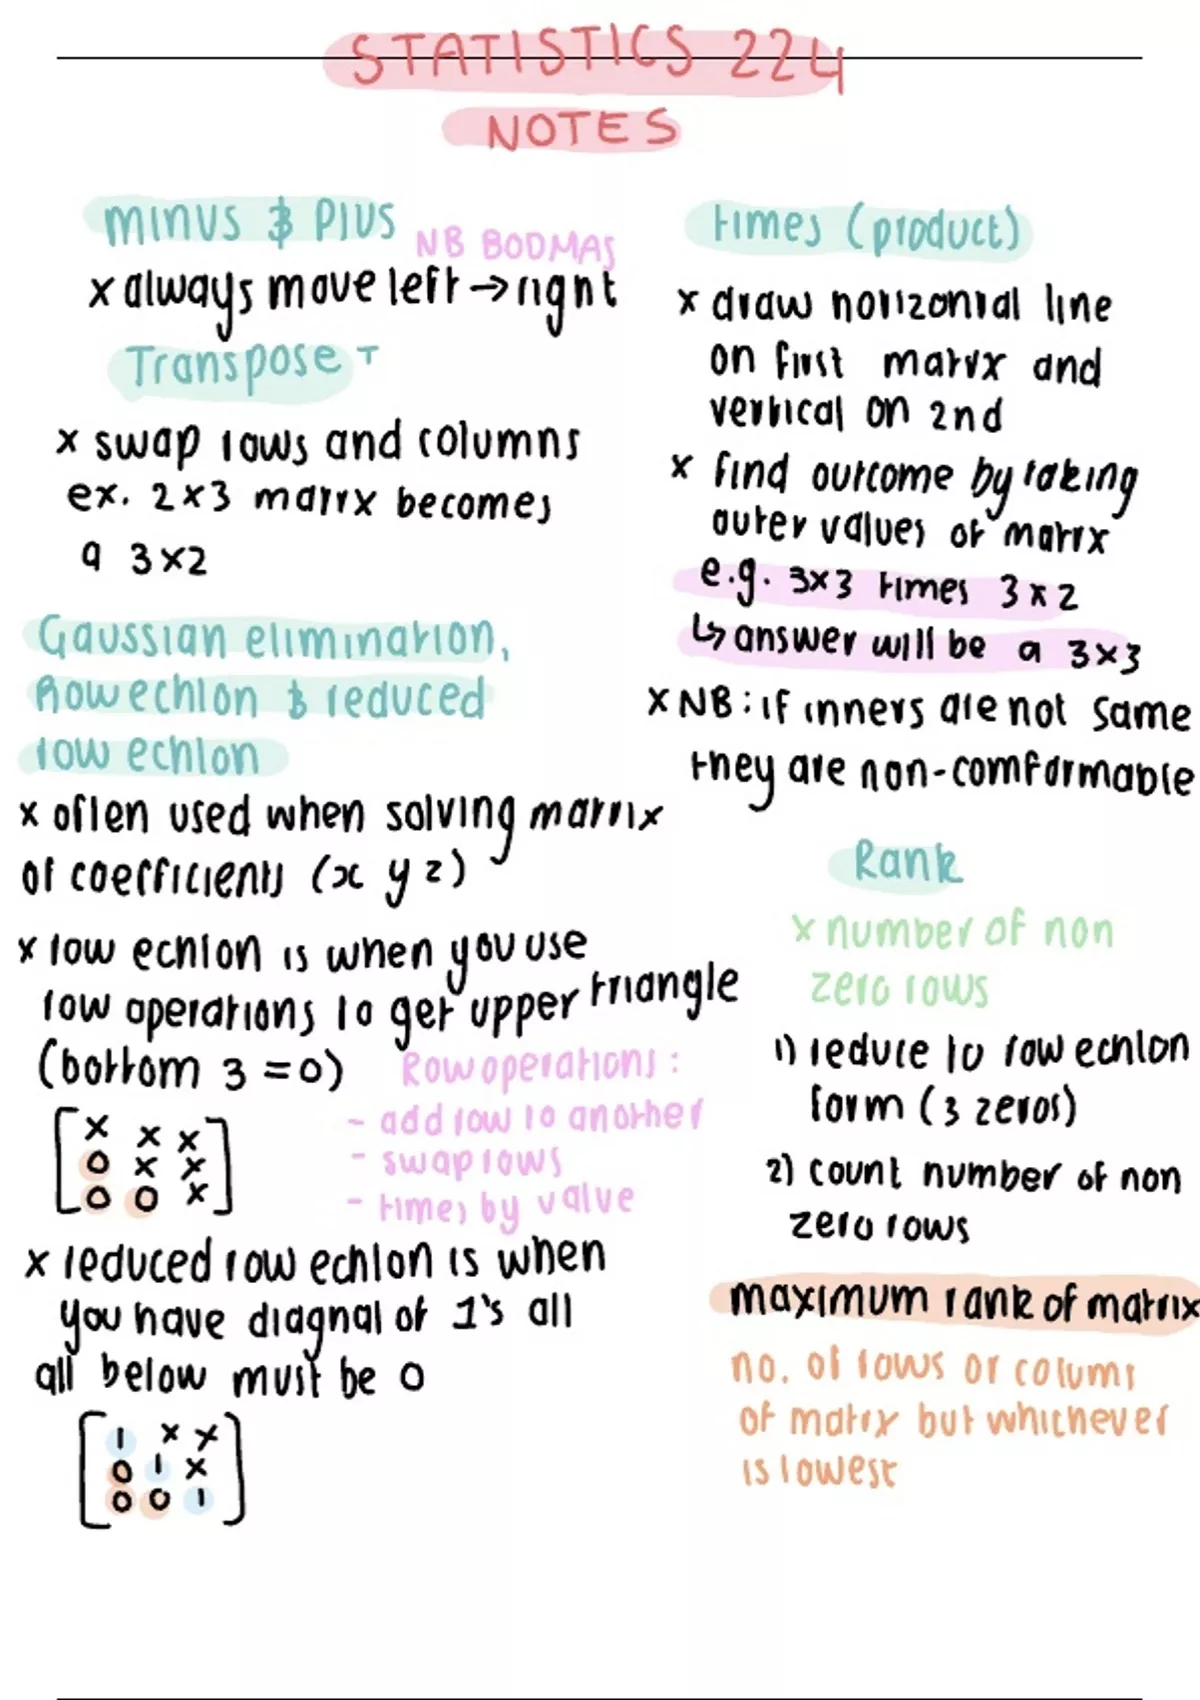 STATISTICS 224
NOTES
minus & Plus
NB BODMAS
x always move left → right
Transpose T
x swap rows and columns
ex. 2x3 matrx becomes
a 3x2
Gaussian elimination,
Row echlon & reduced
row echlon
x often used when solving matrix
of coefficients (x y z)
x row echlon is when you use
row operations to get upper triangle
(bottom 3 = 0)
Row operations:
- add row to another
- swap rows
- times by value
[x x x
0 x x
0 0 x]
x reduced row echlon is when
you have diagnal of 1's all
all below must be 0
[1 x x
0 1 x
0 0 1]
times (product)
x draw horizontal line
on first matrx and
vertical on 2nd
x find outcome by taking
outer values of matrx
e.g. 3x3 times 3x2
↳ answer will be a 3x3
x NB: if inners are not same
they are non-comformable
Rank
x number of non
zero rows
1) reduce to row echlon
form (3 zeros)
2) count number of non
zero rows
maximum rank of matrix
no. of rows or colums
of matrx but whichever
is lowest